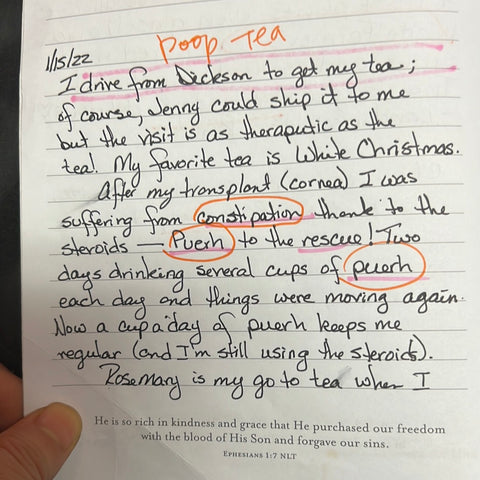 poop tea
1/15/22
I drive from Dickson to get my tea;
of course, Jenny could ship it to me
but the visit is as theraputic as the
tea! My favorite tea is White Christmas.
After my transplant (cornea) I was
suffering from constipation thank to the
steroids — Puerh to the rescue! Two
days drinking several cups of puerh
each day and things were moving again.
Now a cup a day of puerh keeps me
regular (and I'm still using the steroids).
Rosemary is my go to tea when I
He is so rich in kindness and grace that He purchased our freedom
with the blood of His Son and forgave our sins.
EPHESIANS 1:7 NLT